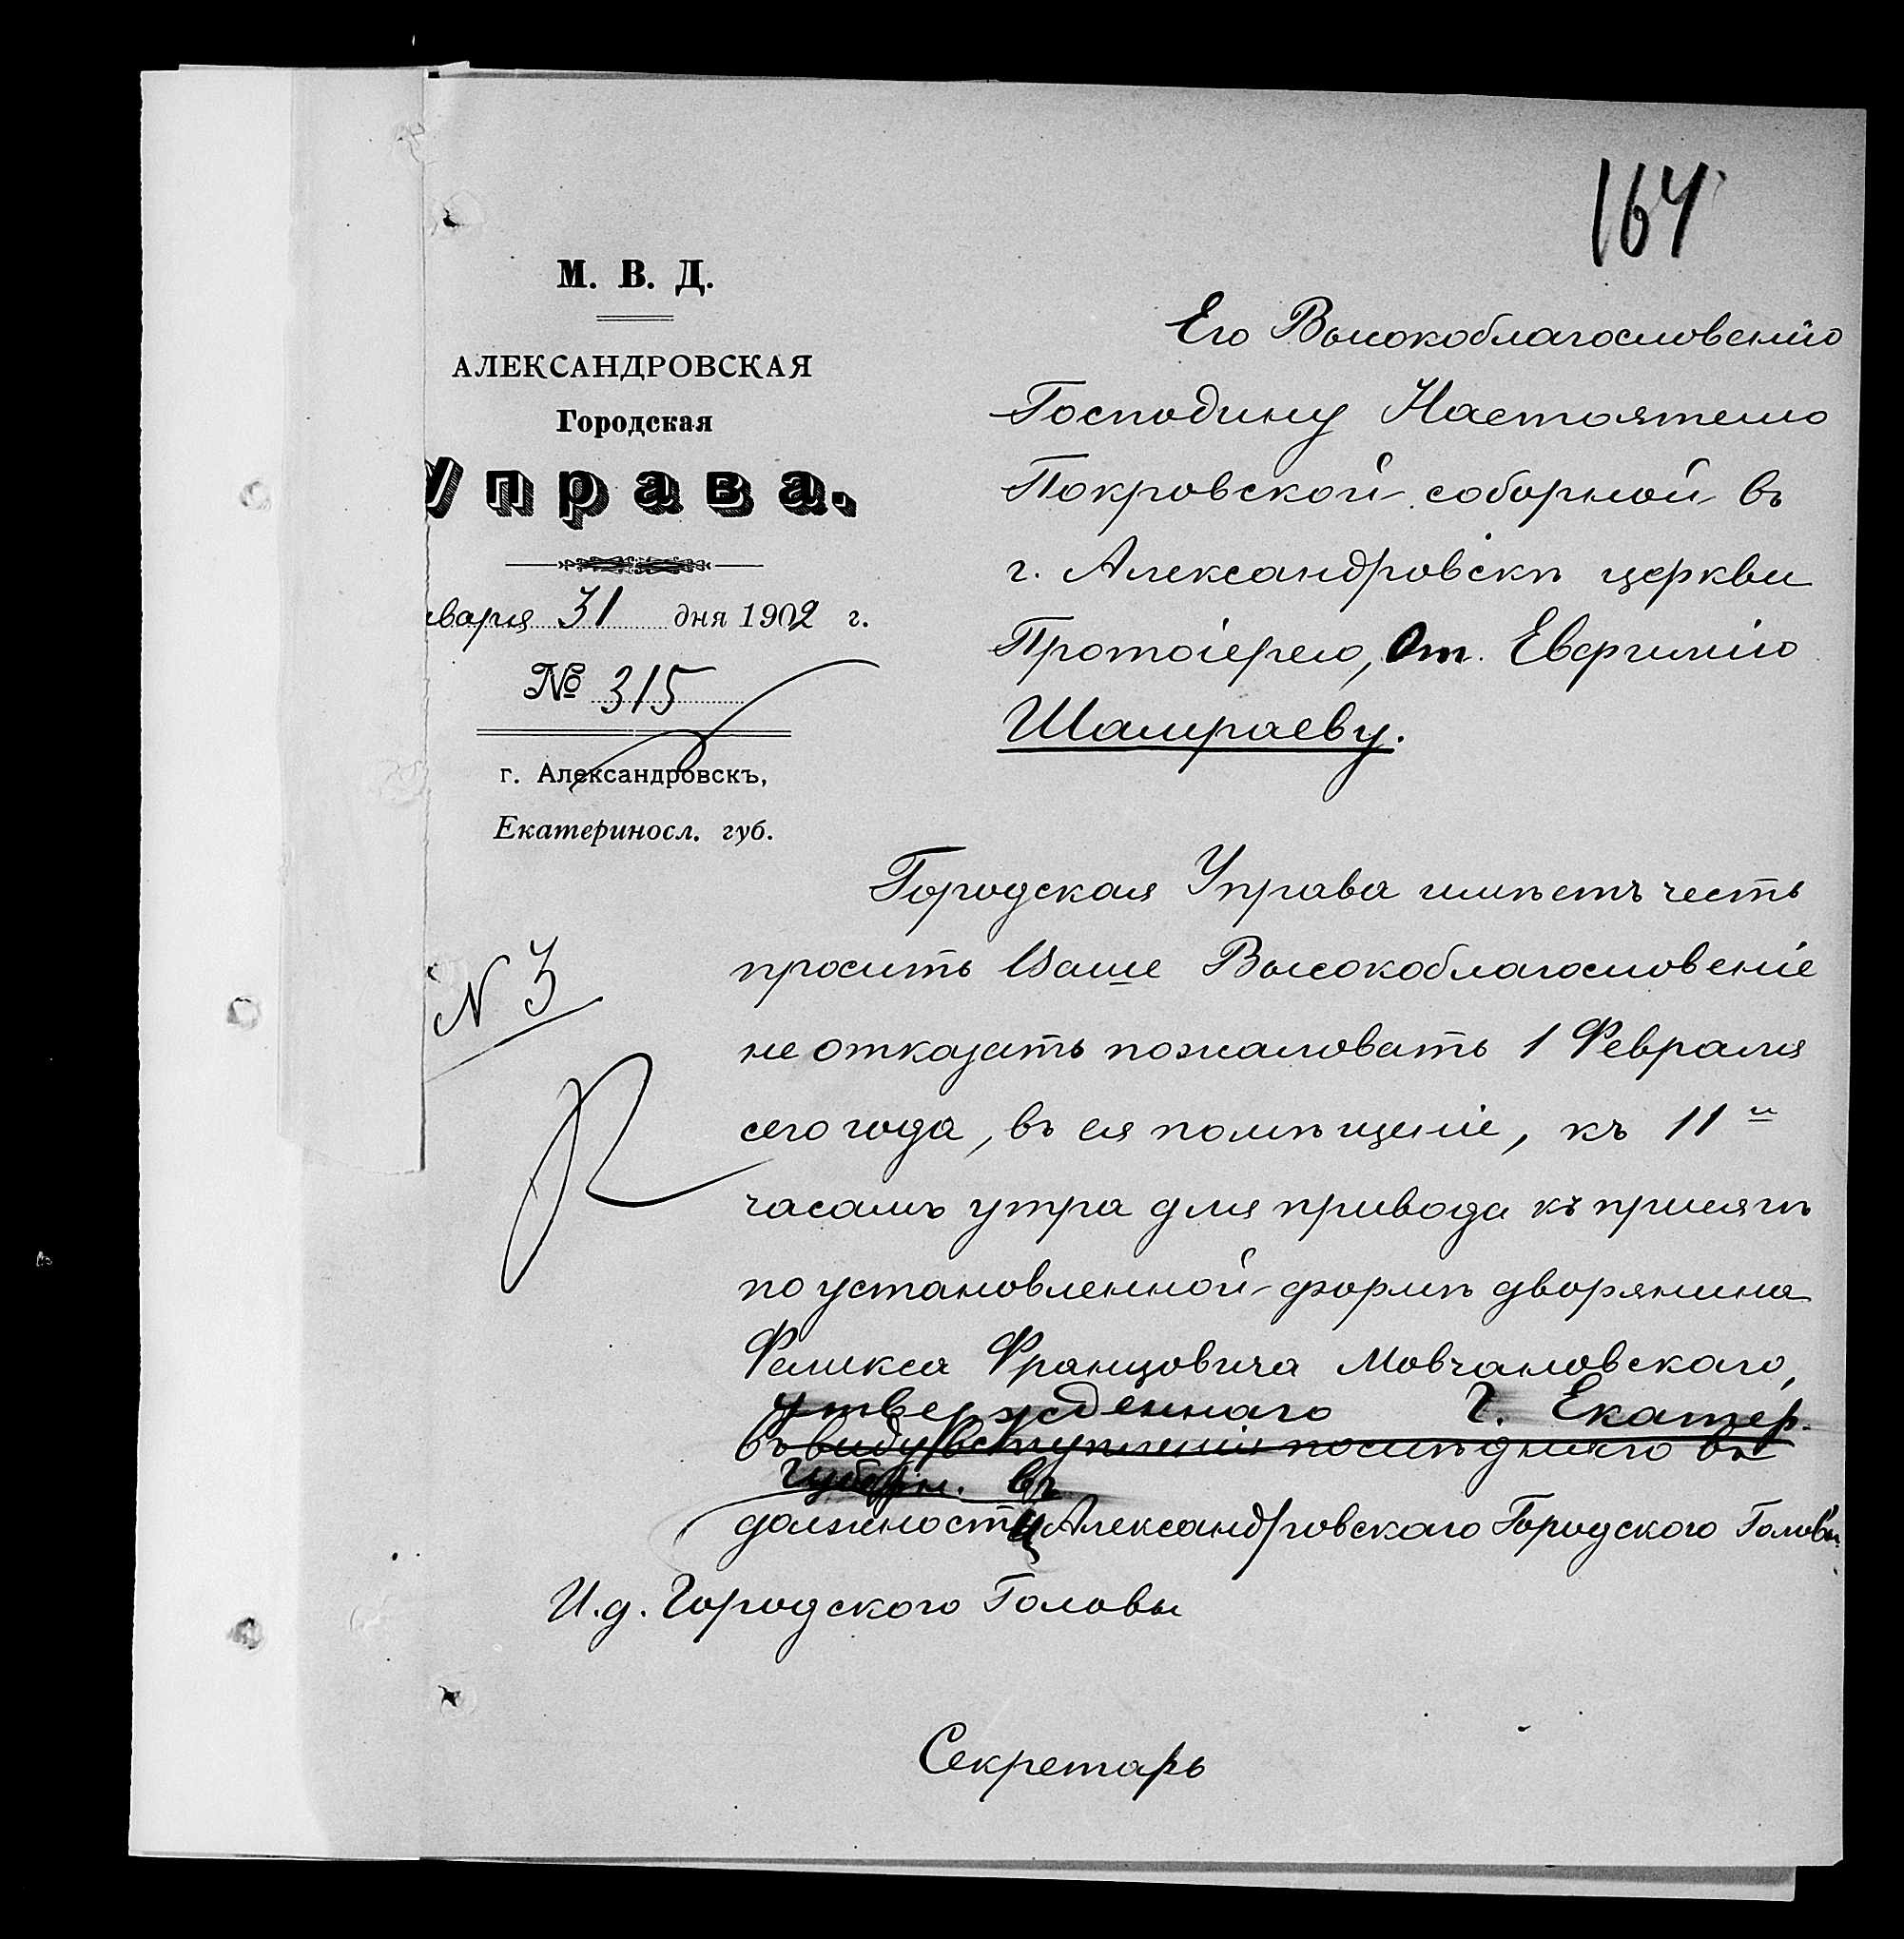 164
М. В. Д.
АЛЕКСАНДРОВСКАЯ
Городская
Управа.
нваря 31 дня 1902 г.
№ 315
г. Александровскъ,
Екатериносл. губ.
Его Высокоблагословенію
Господину Настоятелю
Покровской соборной въ
г. Александровскѣ церкви
Протоіерею, От. Евфимію
Шамраеву.
Городская Управа имѣетъ честь
просить Ваше Высокоблагословеніе
не отказать пожаловать 1 Февраля
сего года, въ ея помѣщеніе, къ 11 и
часамъ утра для привода къ присягѣ
N 3
по установленной формѣ дворянина
Феликса Францовича Мовчановскаго,
утвержденнаго Г. Екатер.
въ виду вступленія послѣдняго въ
Губерн. въ
должности Александровскаго Городского Головы
И.д. Городского Головы
Секретарь